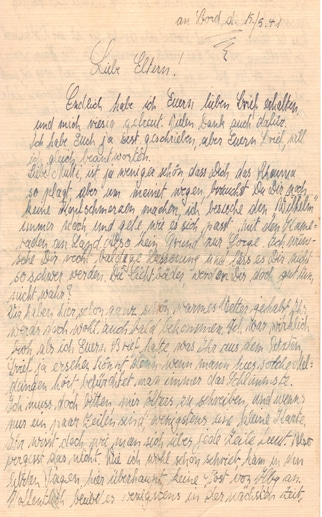 an Bord d. 15/3.41
Liebe Eltern!
Endlich habe ich Euern lieben Brief erhalten,
und mich riesig gefreut. Vielen Dank auch dafür.
Ich habe Euch ja erst geschrieben, aber Euern Brief will
ich gleich beantworten.
Liebe Mutti, ist ja weniger schön dass Dich das Rheuma
so plagt, aber um meinet wegen brauchst Du Dir doch
keine Kopfschmerzen machen, ich besuche den "Wilhelm"
immer noch und gehe wie es sich passt mit den Kame-
raden an Land, also kein Grund zur Sorge. Ich wün-
sche Dir recht baldige Besserung und lass es Dir nicht
so schwer werden. Die Lichtbäder werden Dir doch gut tun,
nicht wahr?
Wir haben hier schon ganz schön warmes Wetter gehabt. Ihr
werdet es wohl auch bald bekommen. Ich war wirklich
froh als ich Euern Brief hatte, was Ihr aus dem
Brief ja ersehen könnt, denn wenn man hier solche Mel-
dungen hört befürchtet man immer das Schlimmste.
Ich muss doch bitten mir öfters zu schreiben, und wenns
nur ein paar Zeilen sind wenigstens eine kleine Karte.
Ihr wisst doch wie man sich über jede Zeile freut. Also
vergesst das nicht. Wie ich wohl schon schrieb kam in den
letzten Tagen hier überhaupt keine Post von
Hoffentlich kommt es wenigstens in der nächsten Zeit,